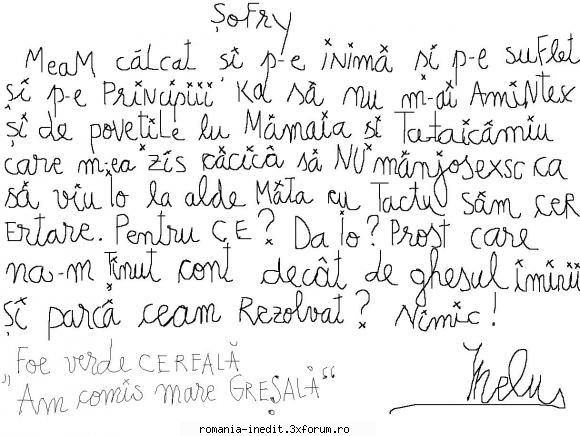 ȘoFRy
MeaM călcat și p-e inimă și p-e suflet
și p-e Principiii Ka să nu m-ai AmiNtex
și de povetile lu Mămaia și Tataicămiu
care m-ea zis căcică să NU mânjosexsc ca
să viu Io la alde Măta cu Tactu săm CER
ERtare. Pentru CE? Da Io? Prost care
na-m ținut cont decât de ghesul iminii
Și parcă ceam Rezolvat? Nimic!
Foe verde CEREALĂ
"Am comis mare GREȘALĂ"
Ihelus
romania-inedit.3xforum.ro